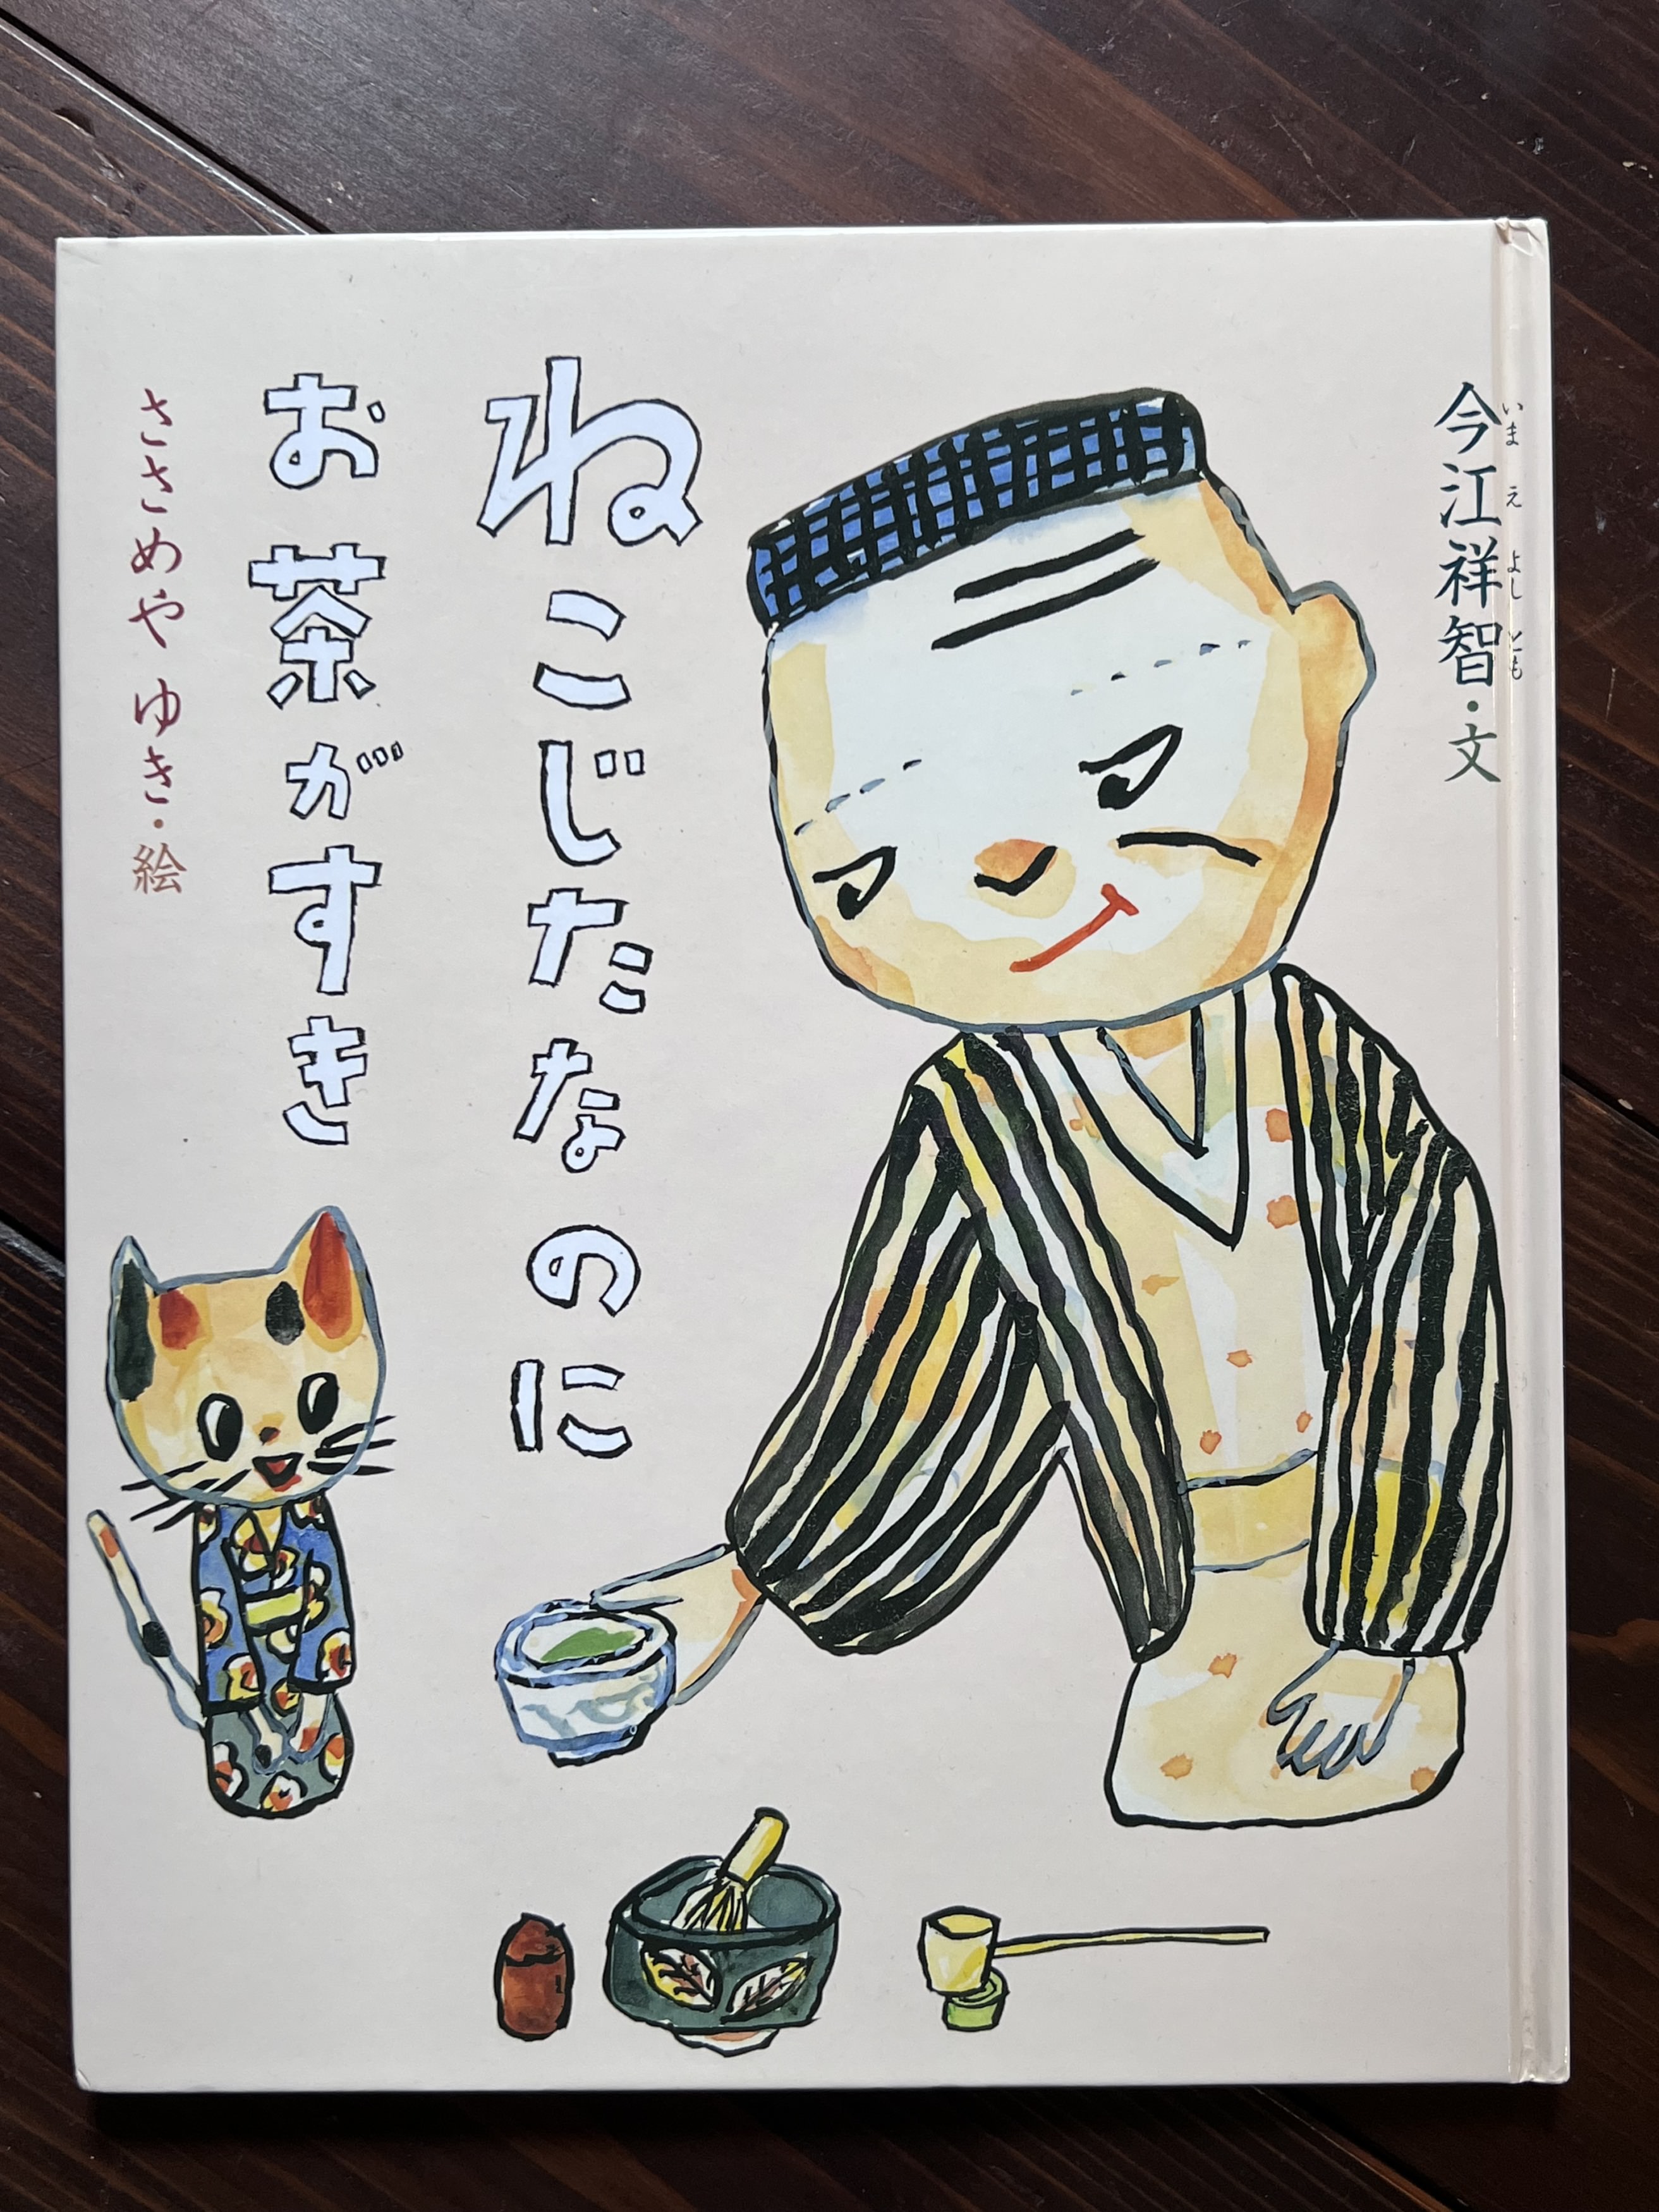 今江祥智・文
いまえよしとも
ねこじたなのに
お茶がすき
ささめやゆき・絵